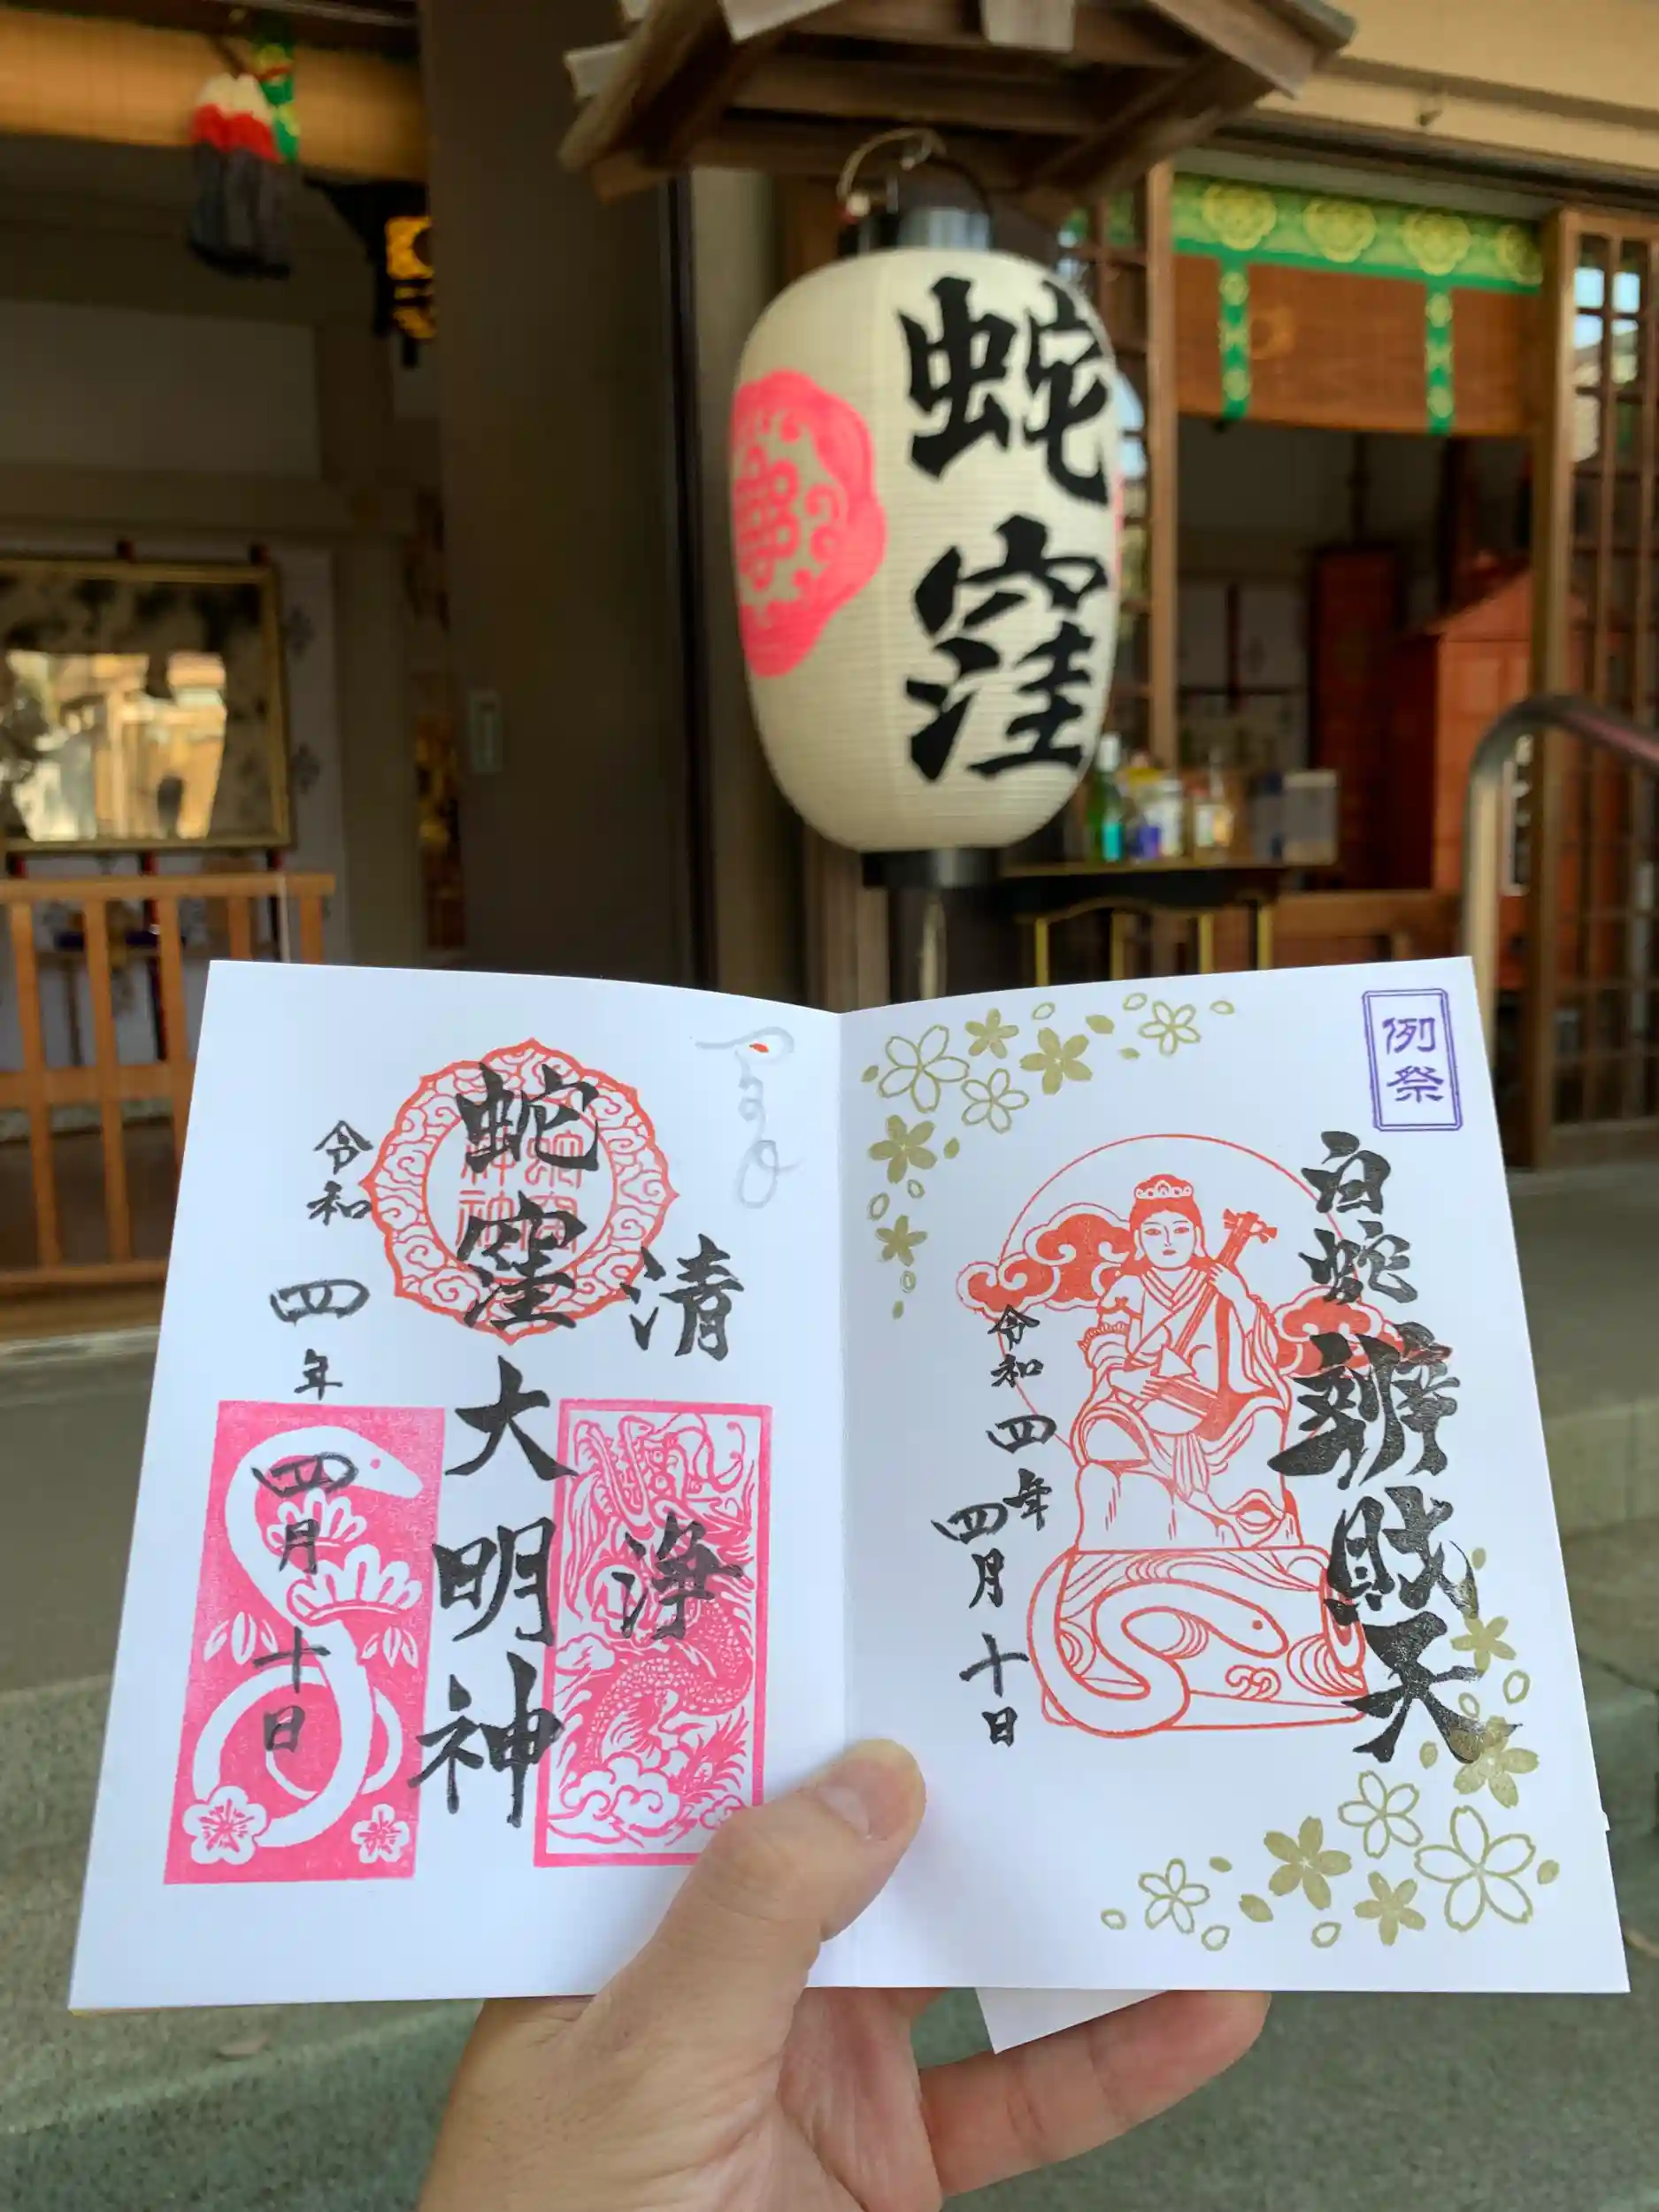 蛇窪
例祭
白蛇辨財天
令和四年
四月十日
清浄
蛇窪大明神
令和四年四月十日